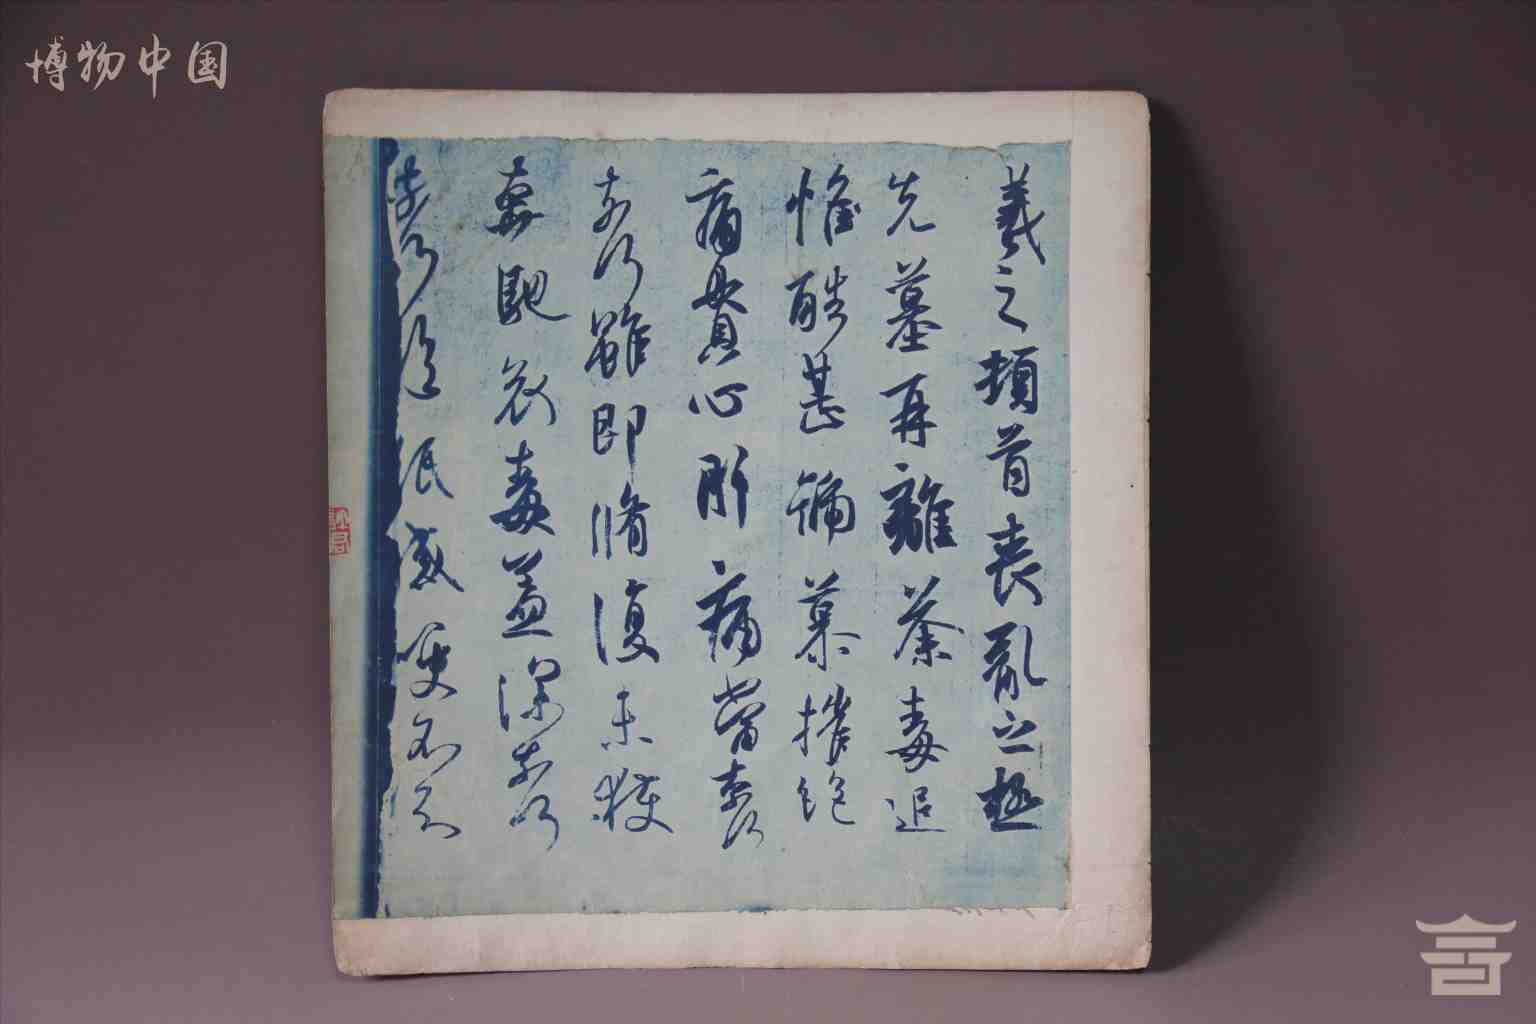 博物中国
羲之頓首喪亂之極
先墓再離荼毒追
惟酷甚號慕摧絶
痛貫心肝痛當奈何
奈何雖即脩復未獲
奔馳哀毒益深奈何
奈何臨紙感哽不知